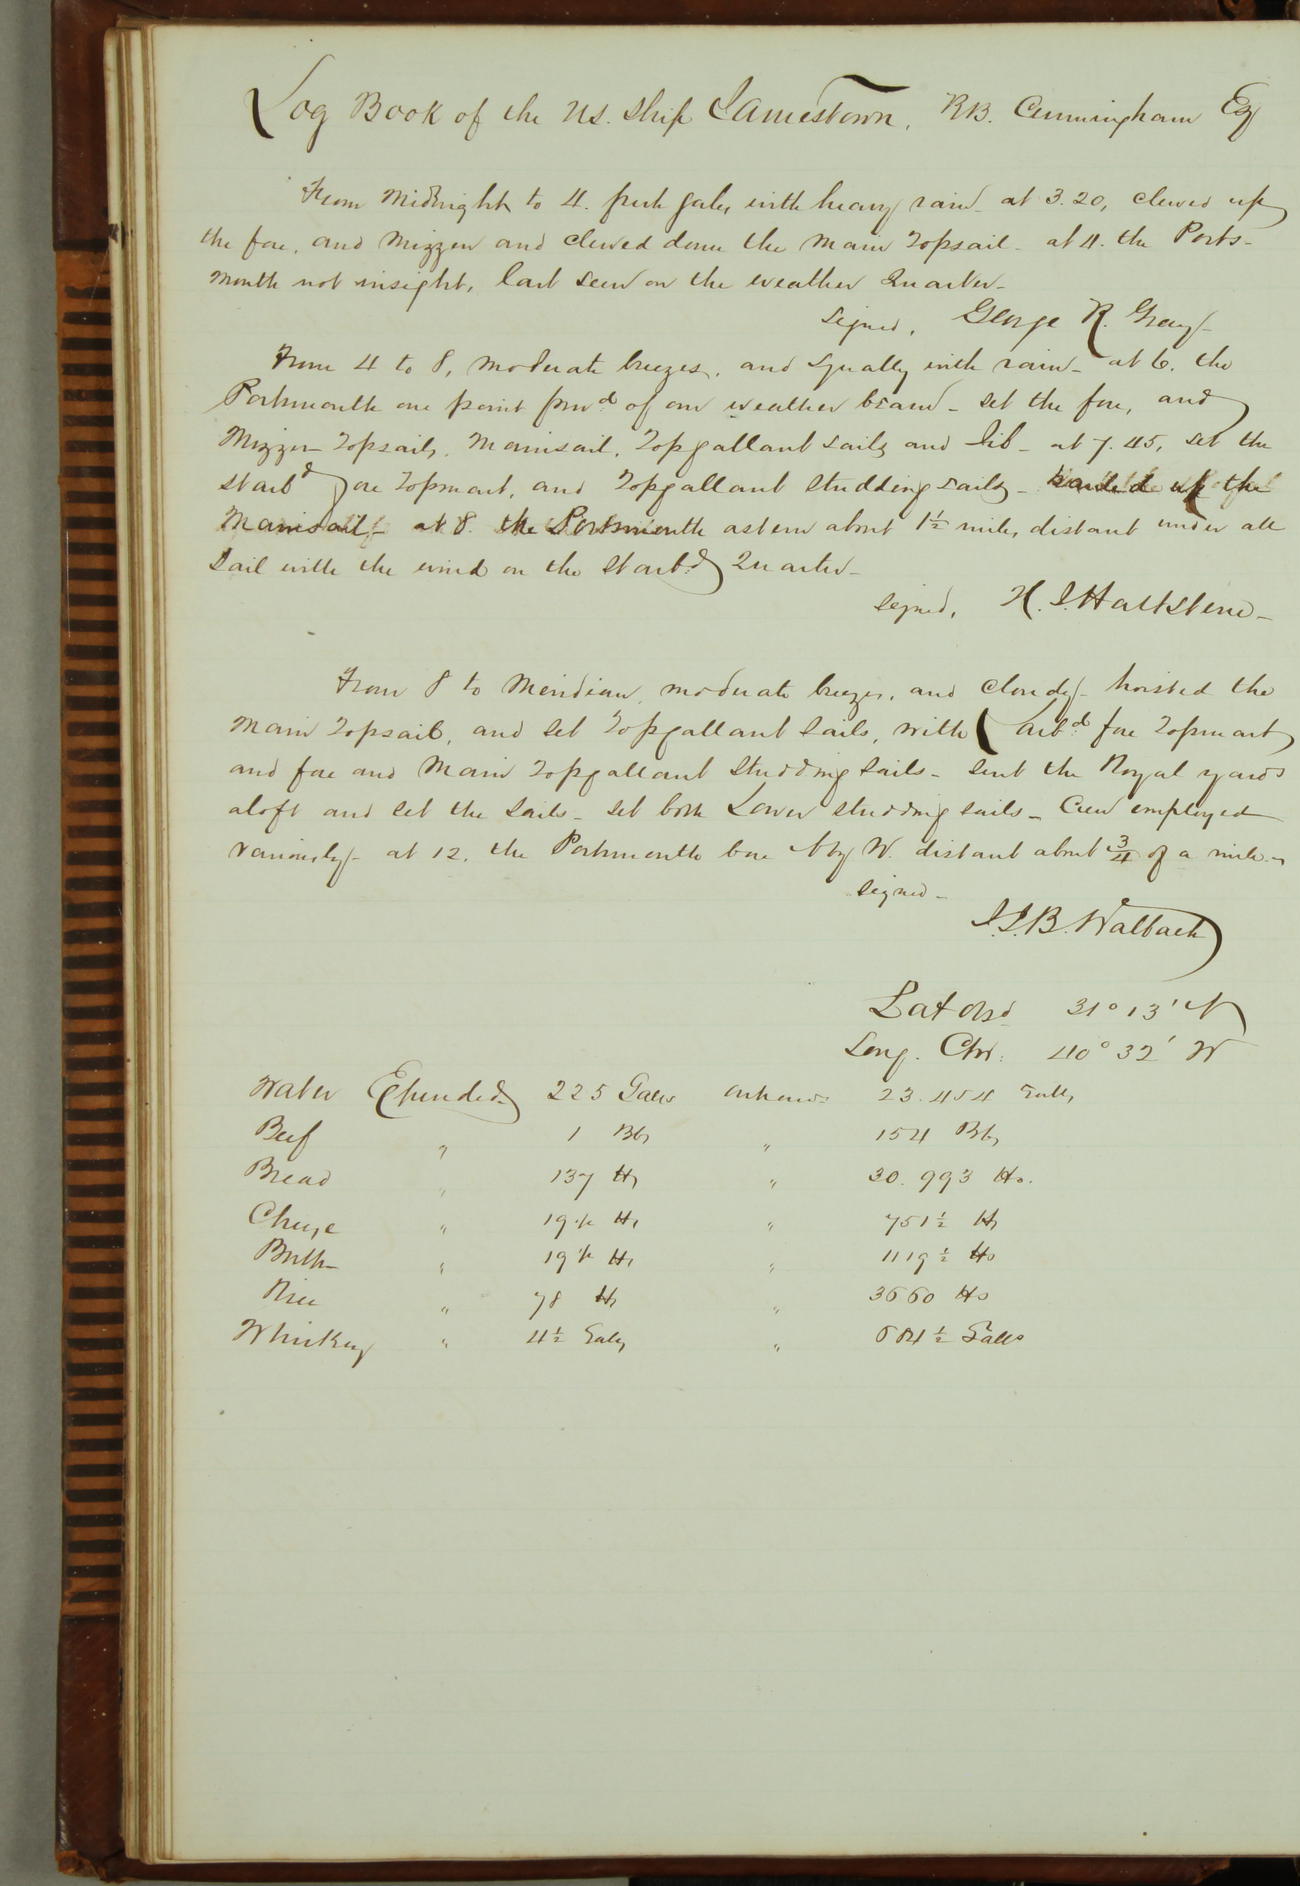 Log Book of the U.S. Ship Jamestown, R.B. Cunningham Esq
From Midnight to 4. fresh gales with heavy rain - at 3.20, clewed up
the fore, and Mizzen and clewed down the Main Topsail - at 4. the Ports-
mouth not insight, last seen on the weather Quarter -
signed, George R. Gray -
From 4 to 8, moderate breezes, and squally with rain - at 6. the
Portsmouth one point forwd of our weather beam - set the fore, and
Mizzen Topsails, Mainsail, Topgallant sails and Jib - at 7.45, set the
starbd fore Topmast, and Topgallant studding sails - hauled up the
Mainsail, - at 8. the Portsmouth astern about 1½ miles, distant under all
sail with the wind on the Starbd Quarter -
signed, H. J. Hartstene -
From 8 to Meridian, moderate breezes, and cloudy - hoisted the
Main Topsail, and set Topgallant sails, with Larbd fore Topmast
and fore and Main Topgallant Studding sails - sent the Royal yards
aloft and set the sails - set both Lower studding sails - Crew employed
variously - at 12, the Portsmouth bore N by W. distant about ¾ of a mile -
signed -
J.J.B. Walbach
Lat Obsd 31° 13' N
Long. Chr: 40° 32' W
Water Expended 225 Galls on hand 23.454 Galls
Beef " 1 Bb " 154 Bbs
Bread " 137 lbs " 30.993 lbs.
Cheese " 19½ lbs " 751½ lbs
Butter " 19½ lbs " 1119½ lbs
Rice " 78 lbs " 3660 lbs
Whiskey " 4½ Galls " 684½ Galls